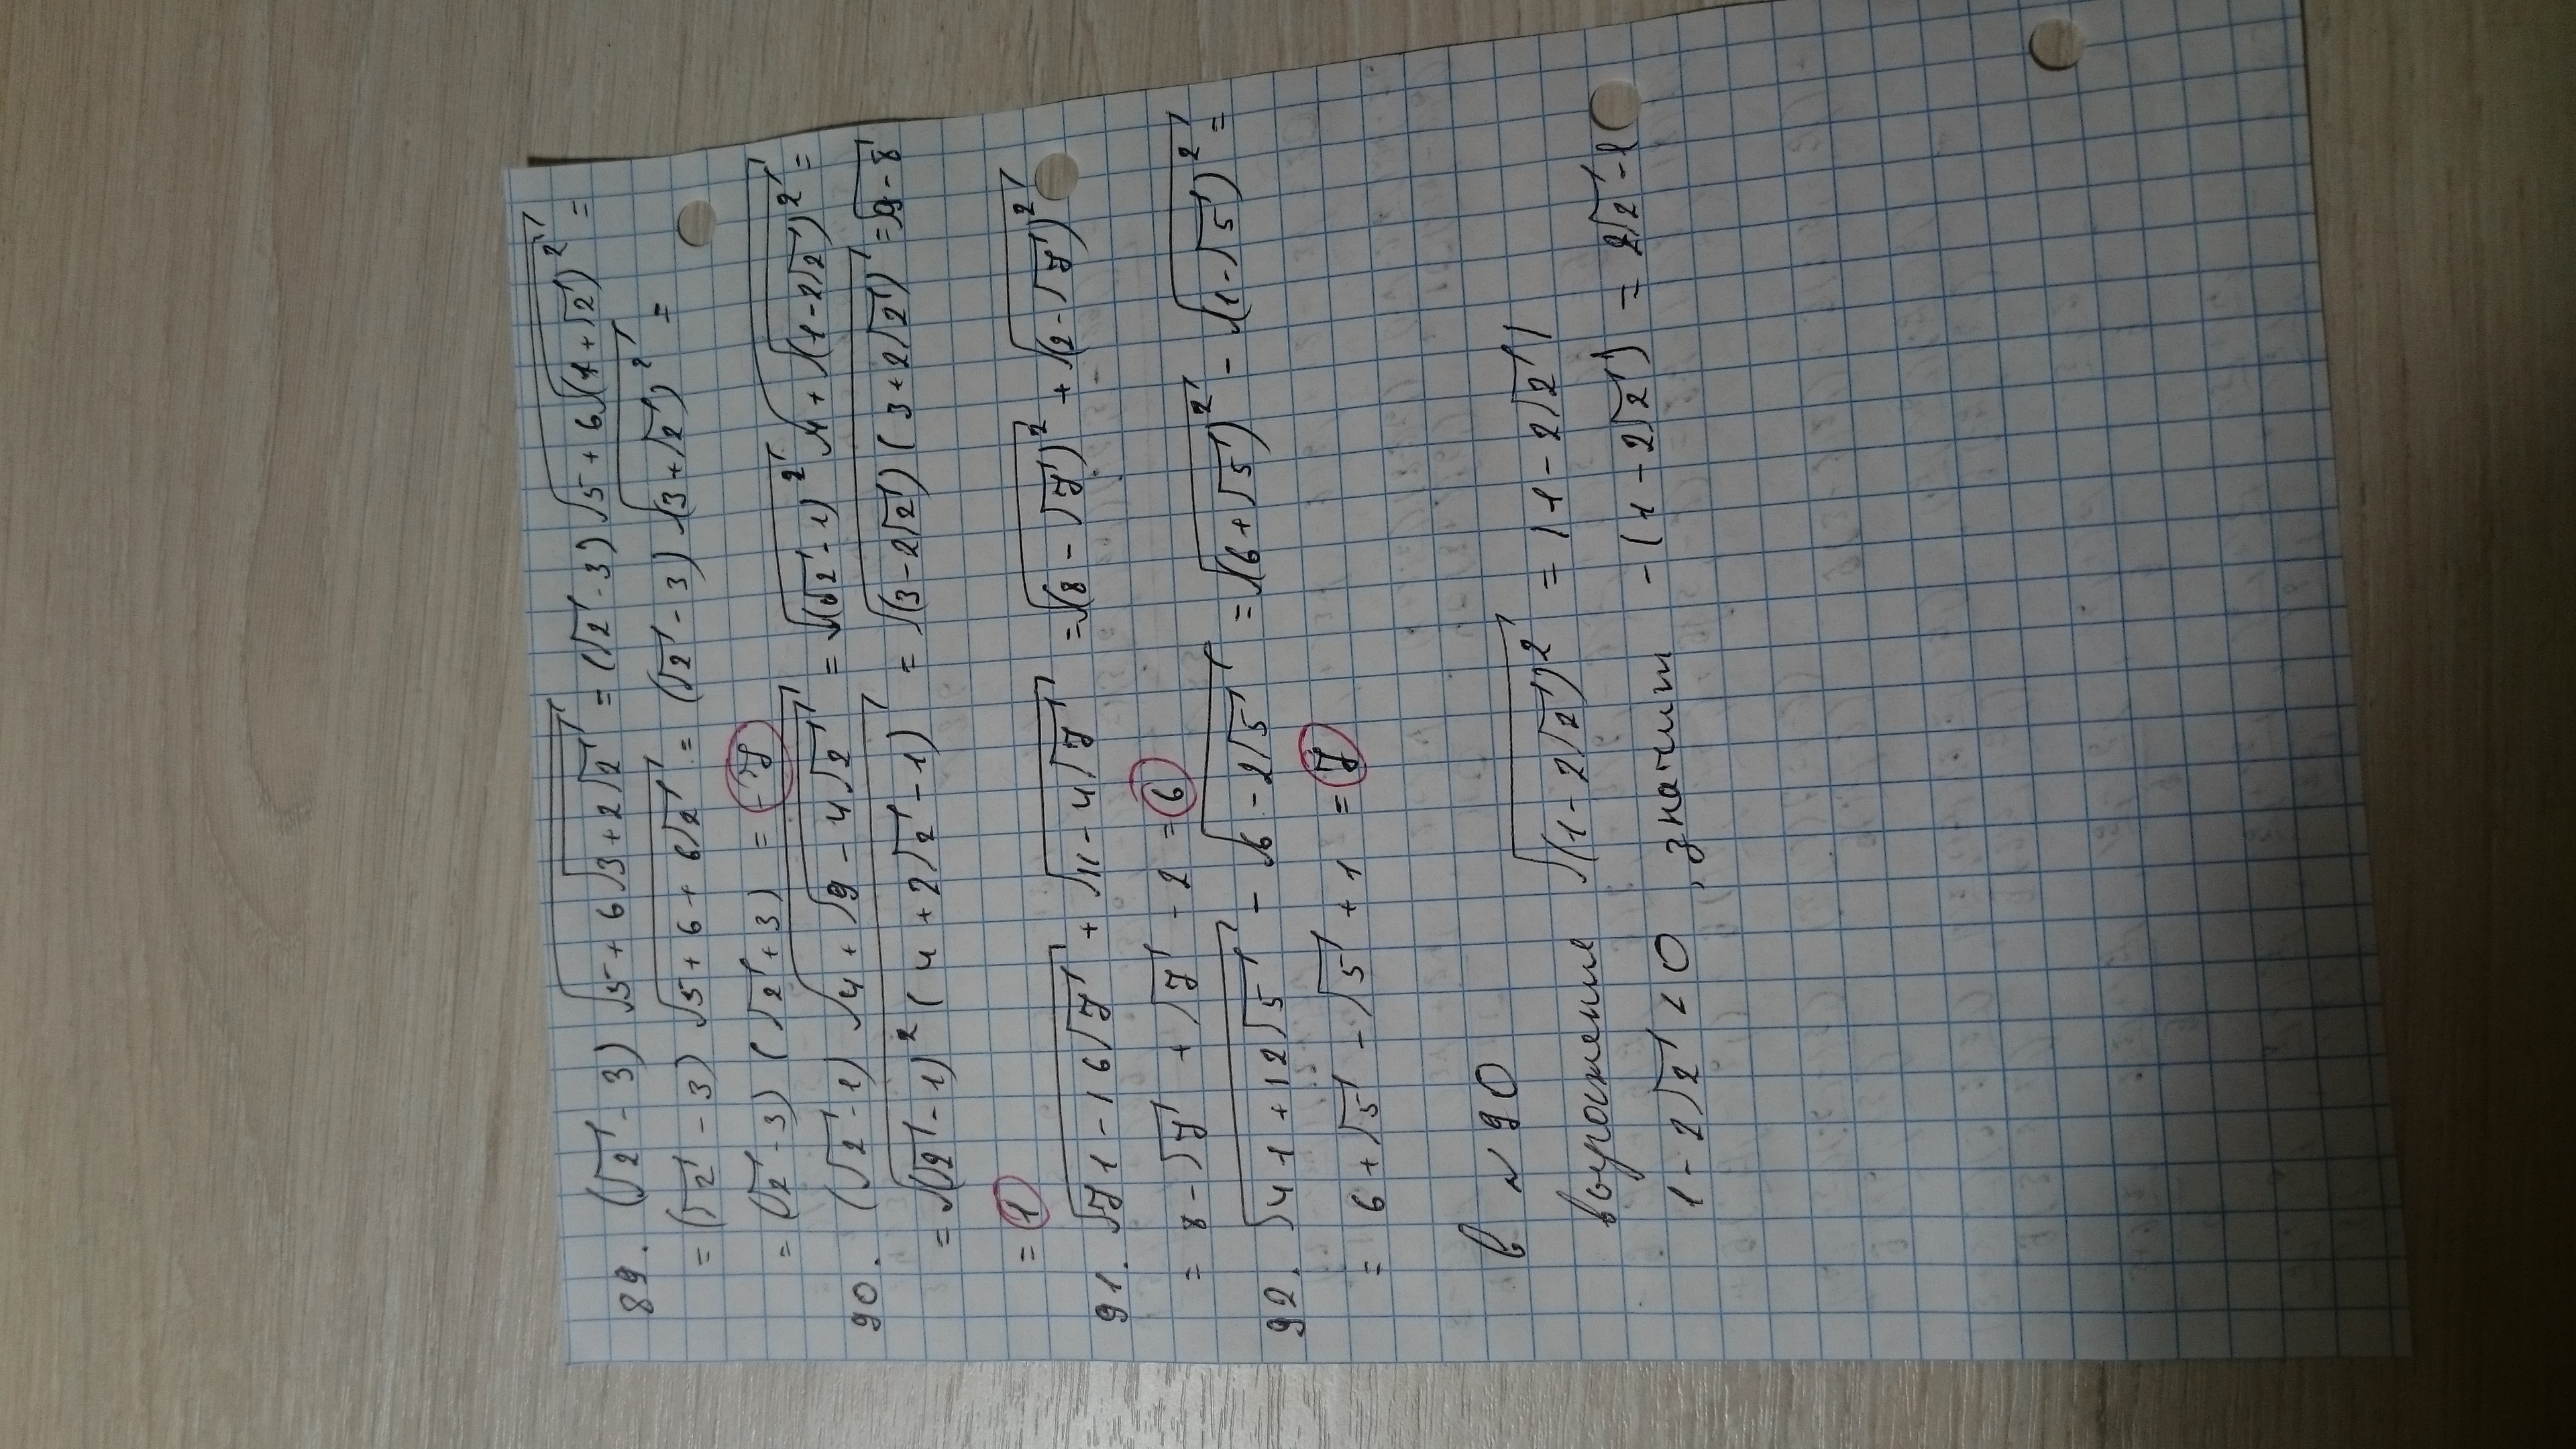 89. (√2 - 3) √(5 + 6√(3 + 2√2)) = (√2 - 3) √(5 + 6√((1 + √2)²)) =
= (√2 - 3) √(5 + 6 + 6√2) = (√2 - 3) √((3 + √2)²) =
= (√2 - 3) (√2 + 3) = -7
90. (√2 - 1) √(4 + √(9 - 4√2)) = √((√2 - 1)²) √(4 + √((1 - 2√2)²)) =
= √((√2 - 1)² (4 + 2√2 - 1)) = √((3 - 2√2) (3 + 2√2)) = √(9 - 8)
= 1
91. √(71 - 16√7) + √(11 - 4√7) = √((8 - √7)²) + √((2 - √7)²)
= 8 - √7 + √7 - 2 = 6
92. √(41 + 12√5) - √(6 - 2√5) = √((6 + √5)²) - √((1 - √5)²) =
= 6 + √5 - √5 + 1 = 7
В № 90
выражение √((1 - 2√2)²) = |1 - 2√2|
1 - 2√2 < 0, значит -(1 - 2√2) = 2√2 - 1